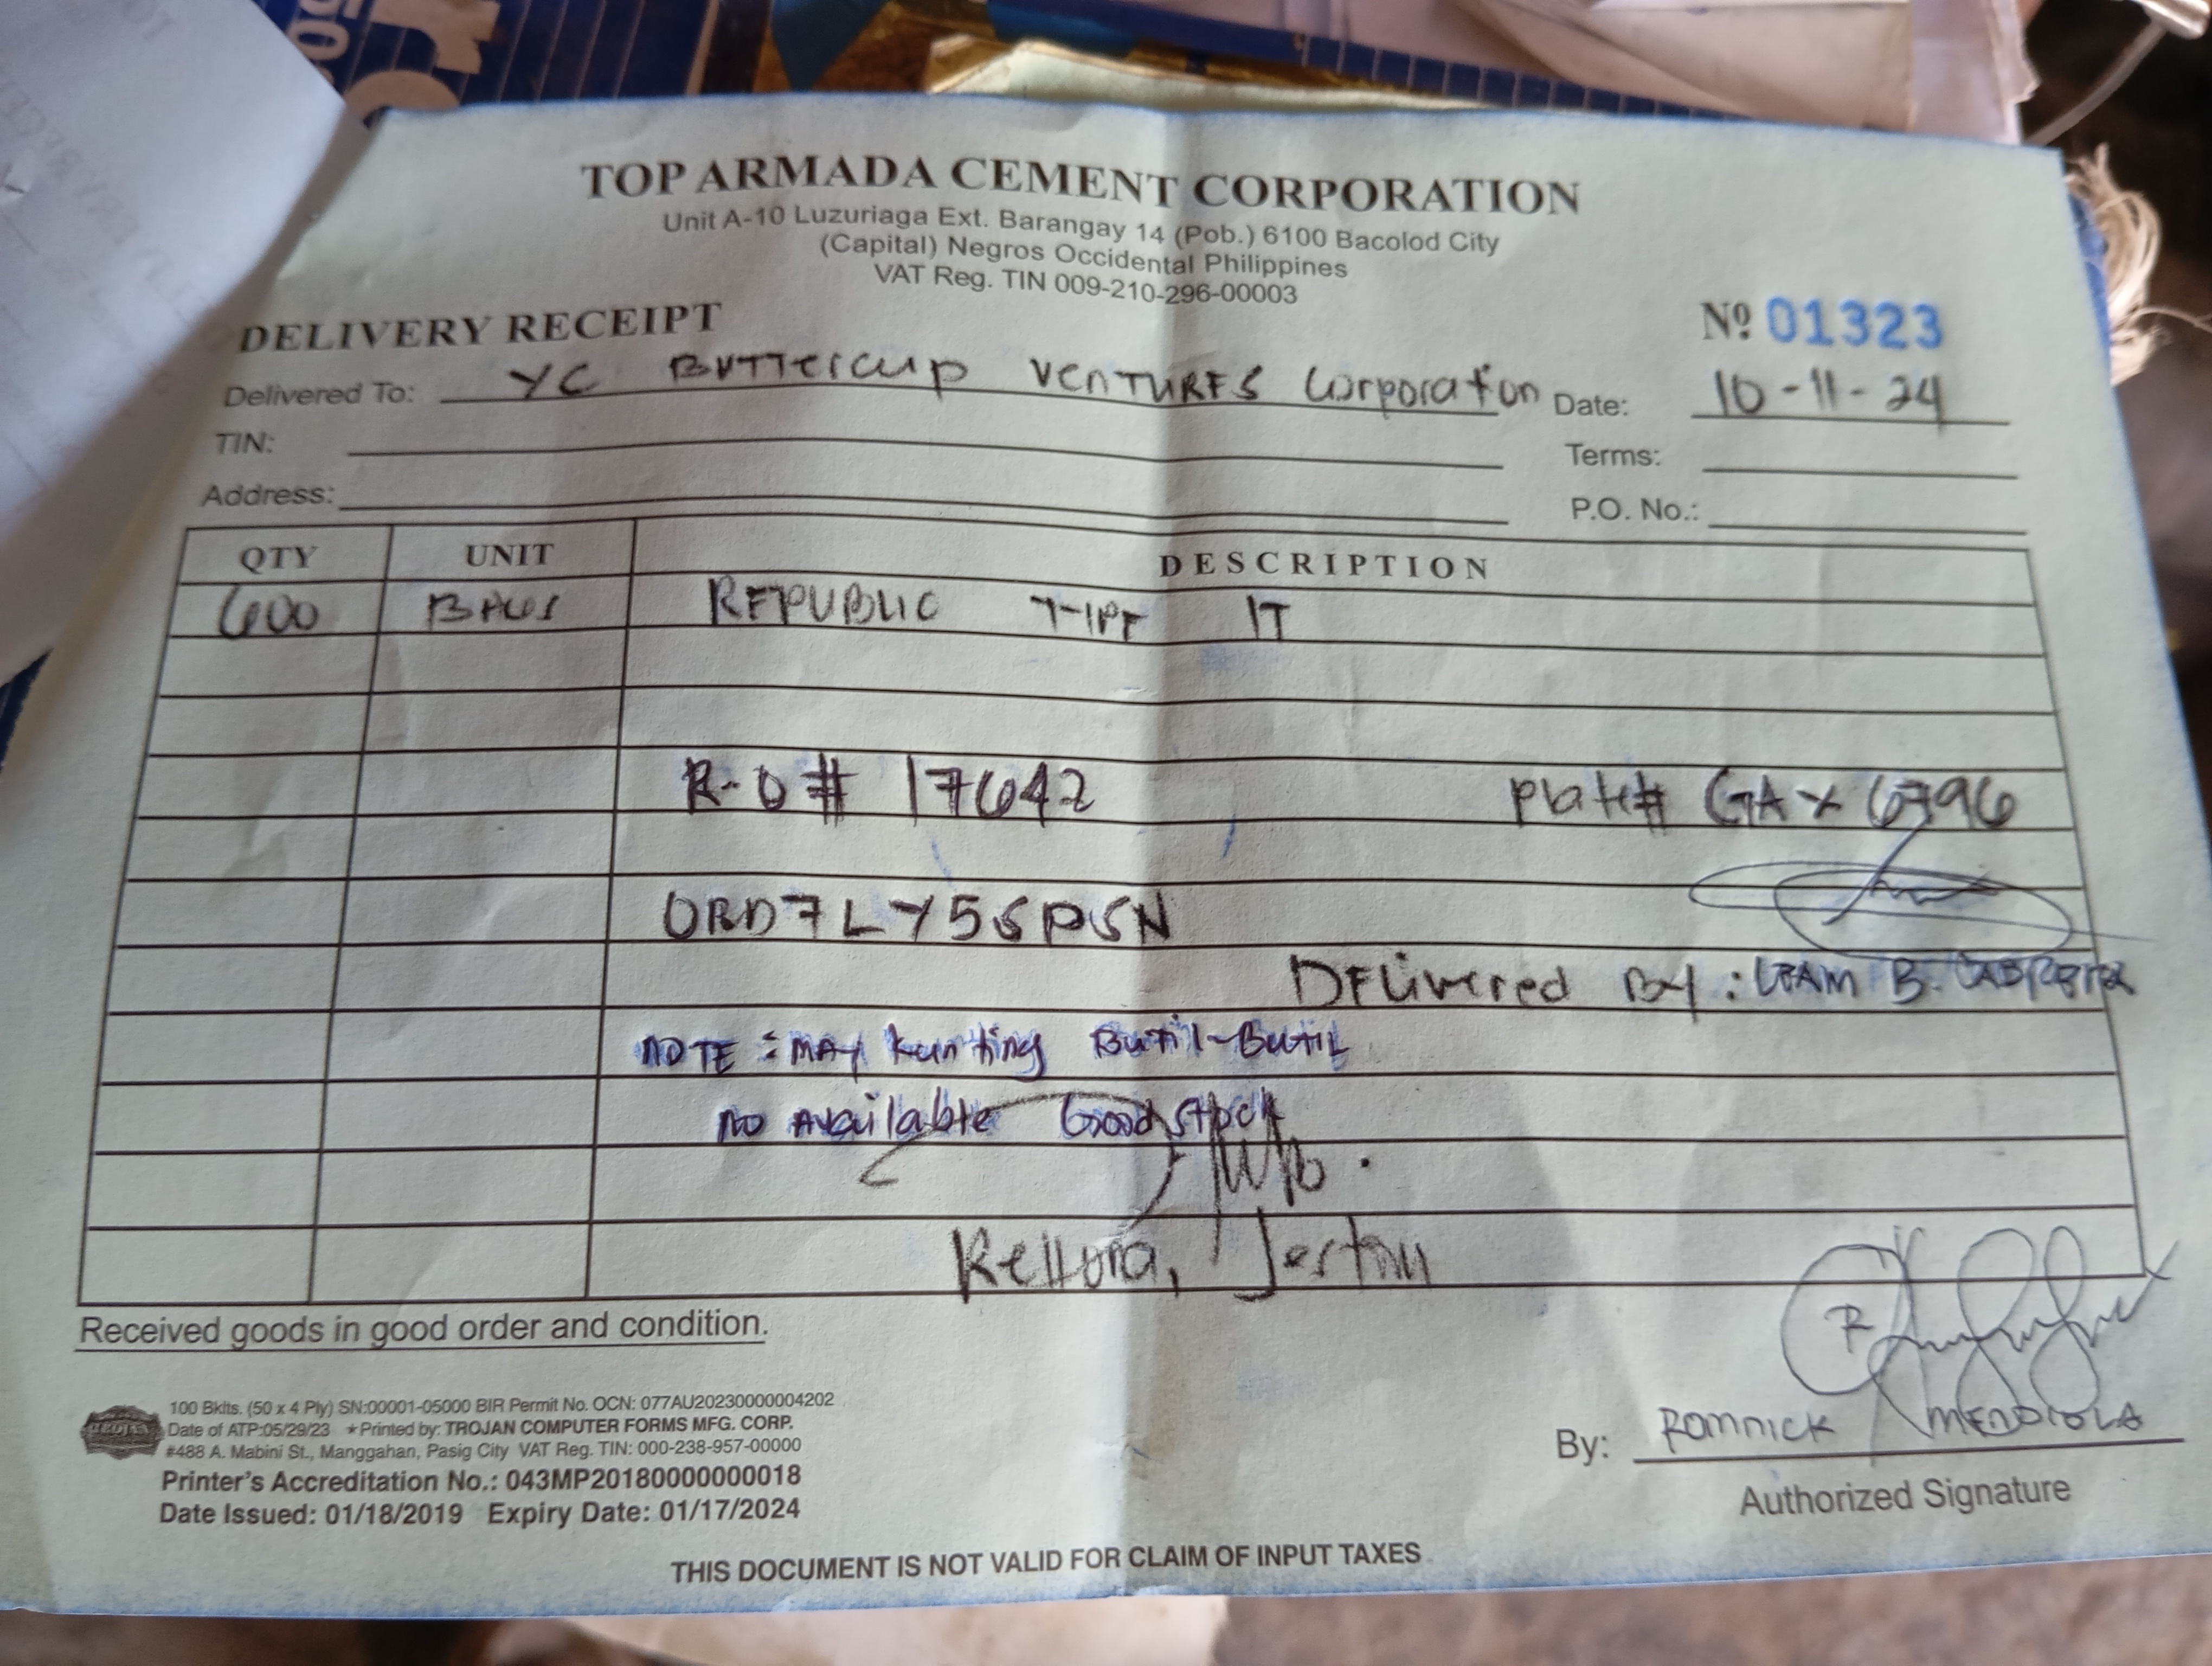 TOP ARMADA CEMENT CORPORATION
Unit A-10 Luzuriaga Ext. Barangay 14 (Pob.) 6100 Bacolod City
(Capital) Negros Occidental Philippines
VAT Reg. TIN 009-210-296-00003
DELIVERY RECEIPT
Nº 01323
Delivered To: YC BUTTERCUP VENTURES Corporation Date: 10-11-24
TIN: Terms:
Address: P.O. No.:
QTY UNIT DESCRIPTION
600 BAGS REPUBLIC TYPE 1T
R-O# 17642 Plate# GAX 6796
ORD7LY5SPSN
DELivered By: B.
NOTE: MAY kunting Butil-Butil
NO Available Good stock
Received goods in good order and condition.
100 Bklts. (50 x 4 Ply) SN:00001-05000 BIR Permit No. OCN: 077AU20230000004202
Date of ATP:05/29/23 ★Printed by: TROJAN COMPUTER FORMS MFG. CORP.
#488 A. Mabini St., Manggahan, Pasig City VAT Reg. TIN: 000-238-957-00000
Printer's Accreditation No.: 043MP20180000000018
Date Issued: 01/18/2019 Expiry Date: 01/17/2024
By: ROMNICK MENDIOLA
Authorized Signature
THIS DOCUMENT IS NOT VALID FOR CLAIM OF INPUT TAXES